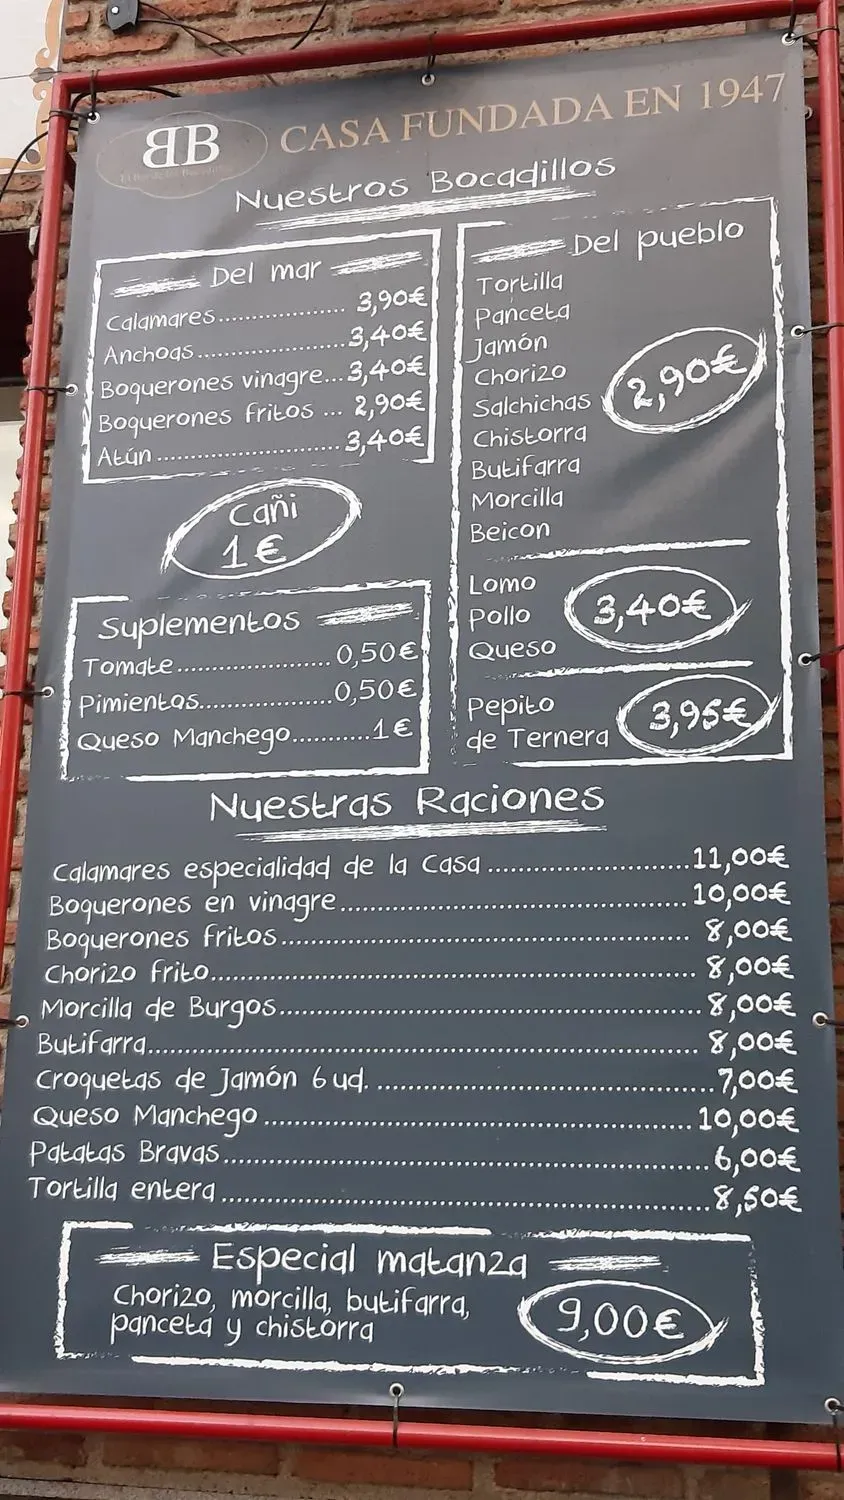 BB
CASA FUNDADA EN 1947
Nuestros Bocadillos
Del mar
Calamares.................. 3,90€
Anchoas.....................3,40€
Boquerones vinagre...3,40€
Boquerones fritos ... 2,90€
Atún ..........................3,40€
Cañi
1€
Suplementos
Tomate......................0,50€
Pimientos...................0,50€
Queso Manchego...........1€
Del pueblo
Tortilla
Panceta
Jamón
Chorizo
Salchichas
Chistorra
Butifarra
Morcilla
Beicon
2,90€
Lomo
Pollo
Queso
3,40€
Pepito
de Ternera
3,95€
Nuestras Raciones
Calamares especialidad de la Casa ..............................11,00€
Boquerones en vinagre....................................................10,00€
Boquerones fritos............................................................ 8,00€
Chorizo frito.................................................................... 8,00€
Morcilla de Burgos............................................................8,00€
Butifarra.......................................................................... 8,00€
Croquetas de Jamón 6 ud. ................................................7,00€
Queso Manchego ..............................................................10,00€
Patatas Bravas..................................................................6,00€
Tortilla entera ..................................................................8,50€
Especial matanza
Chorizo, morcilla, butifarra,
panceta y chistorra
9,00€